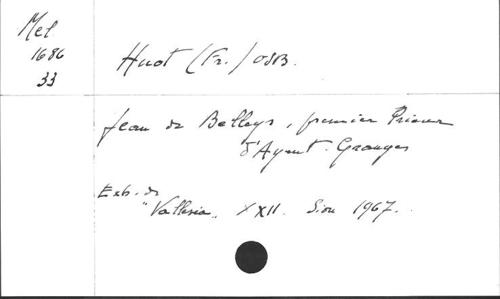 Mel
1686
33
Huot (Fr.) OSB.
Jean de Belleys, premier Prieur
d'Ayent-Granges
Extr. de
"Vallesia", XXII. Sion 1967.